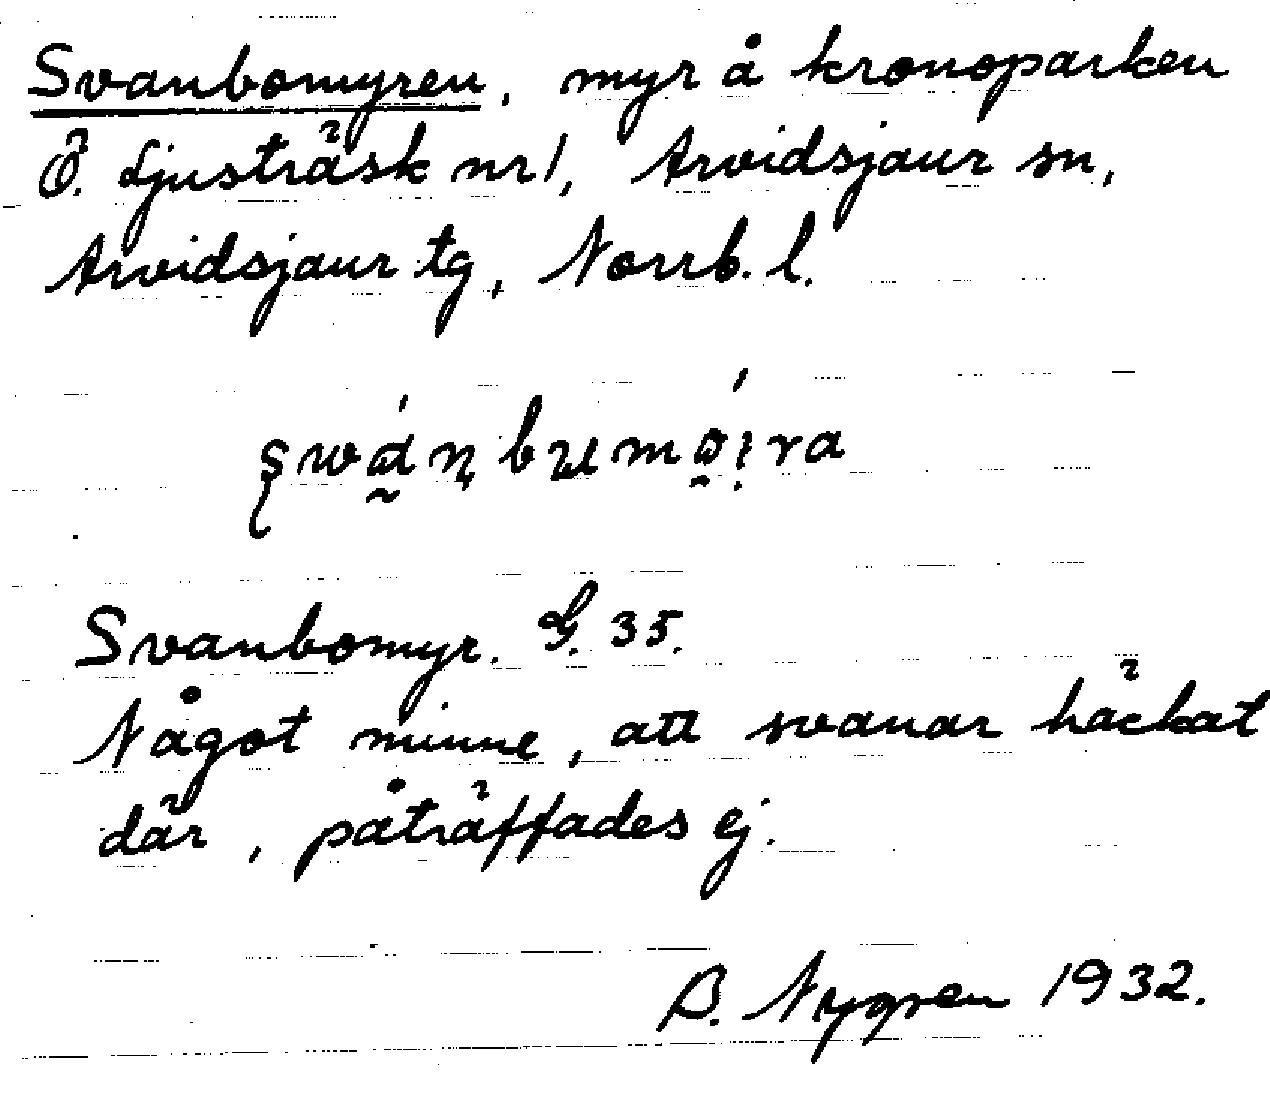 Svanbomyren, myr å kronoparken
Ö. Ljusträsk nr 1, Arvidsjaur sn,
Arvidsjaur tg, Norrb. l.
Svanbomyr. G. 35.
Något minne, att svanar häckat
där, påträffades ej.
B. Nygren 1932.